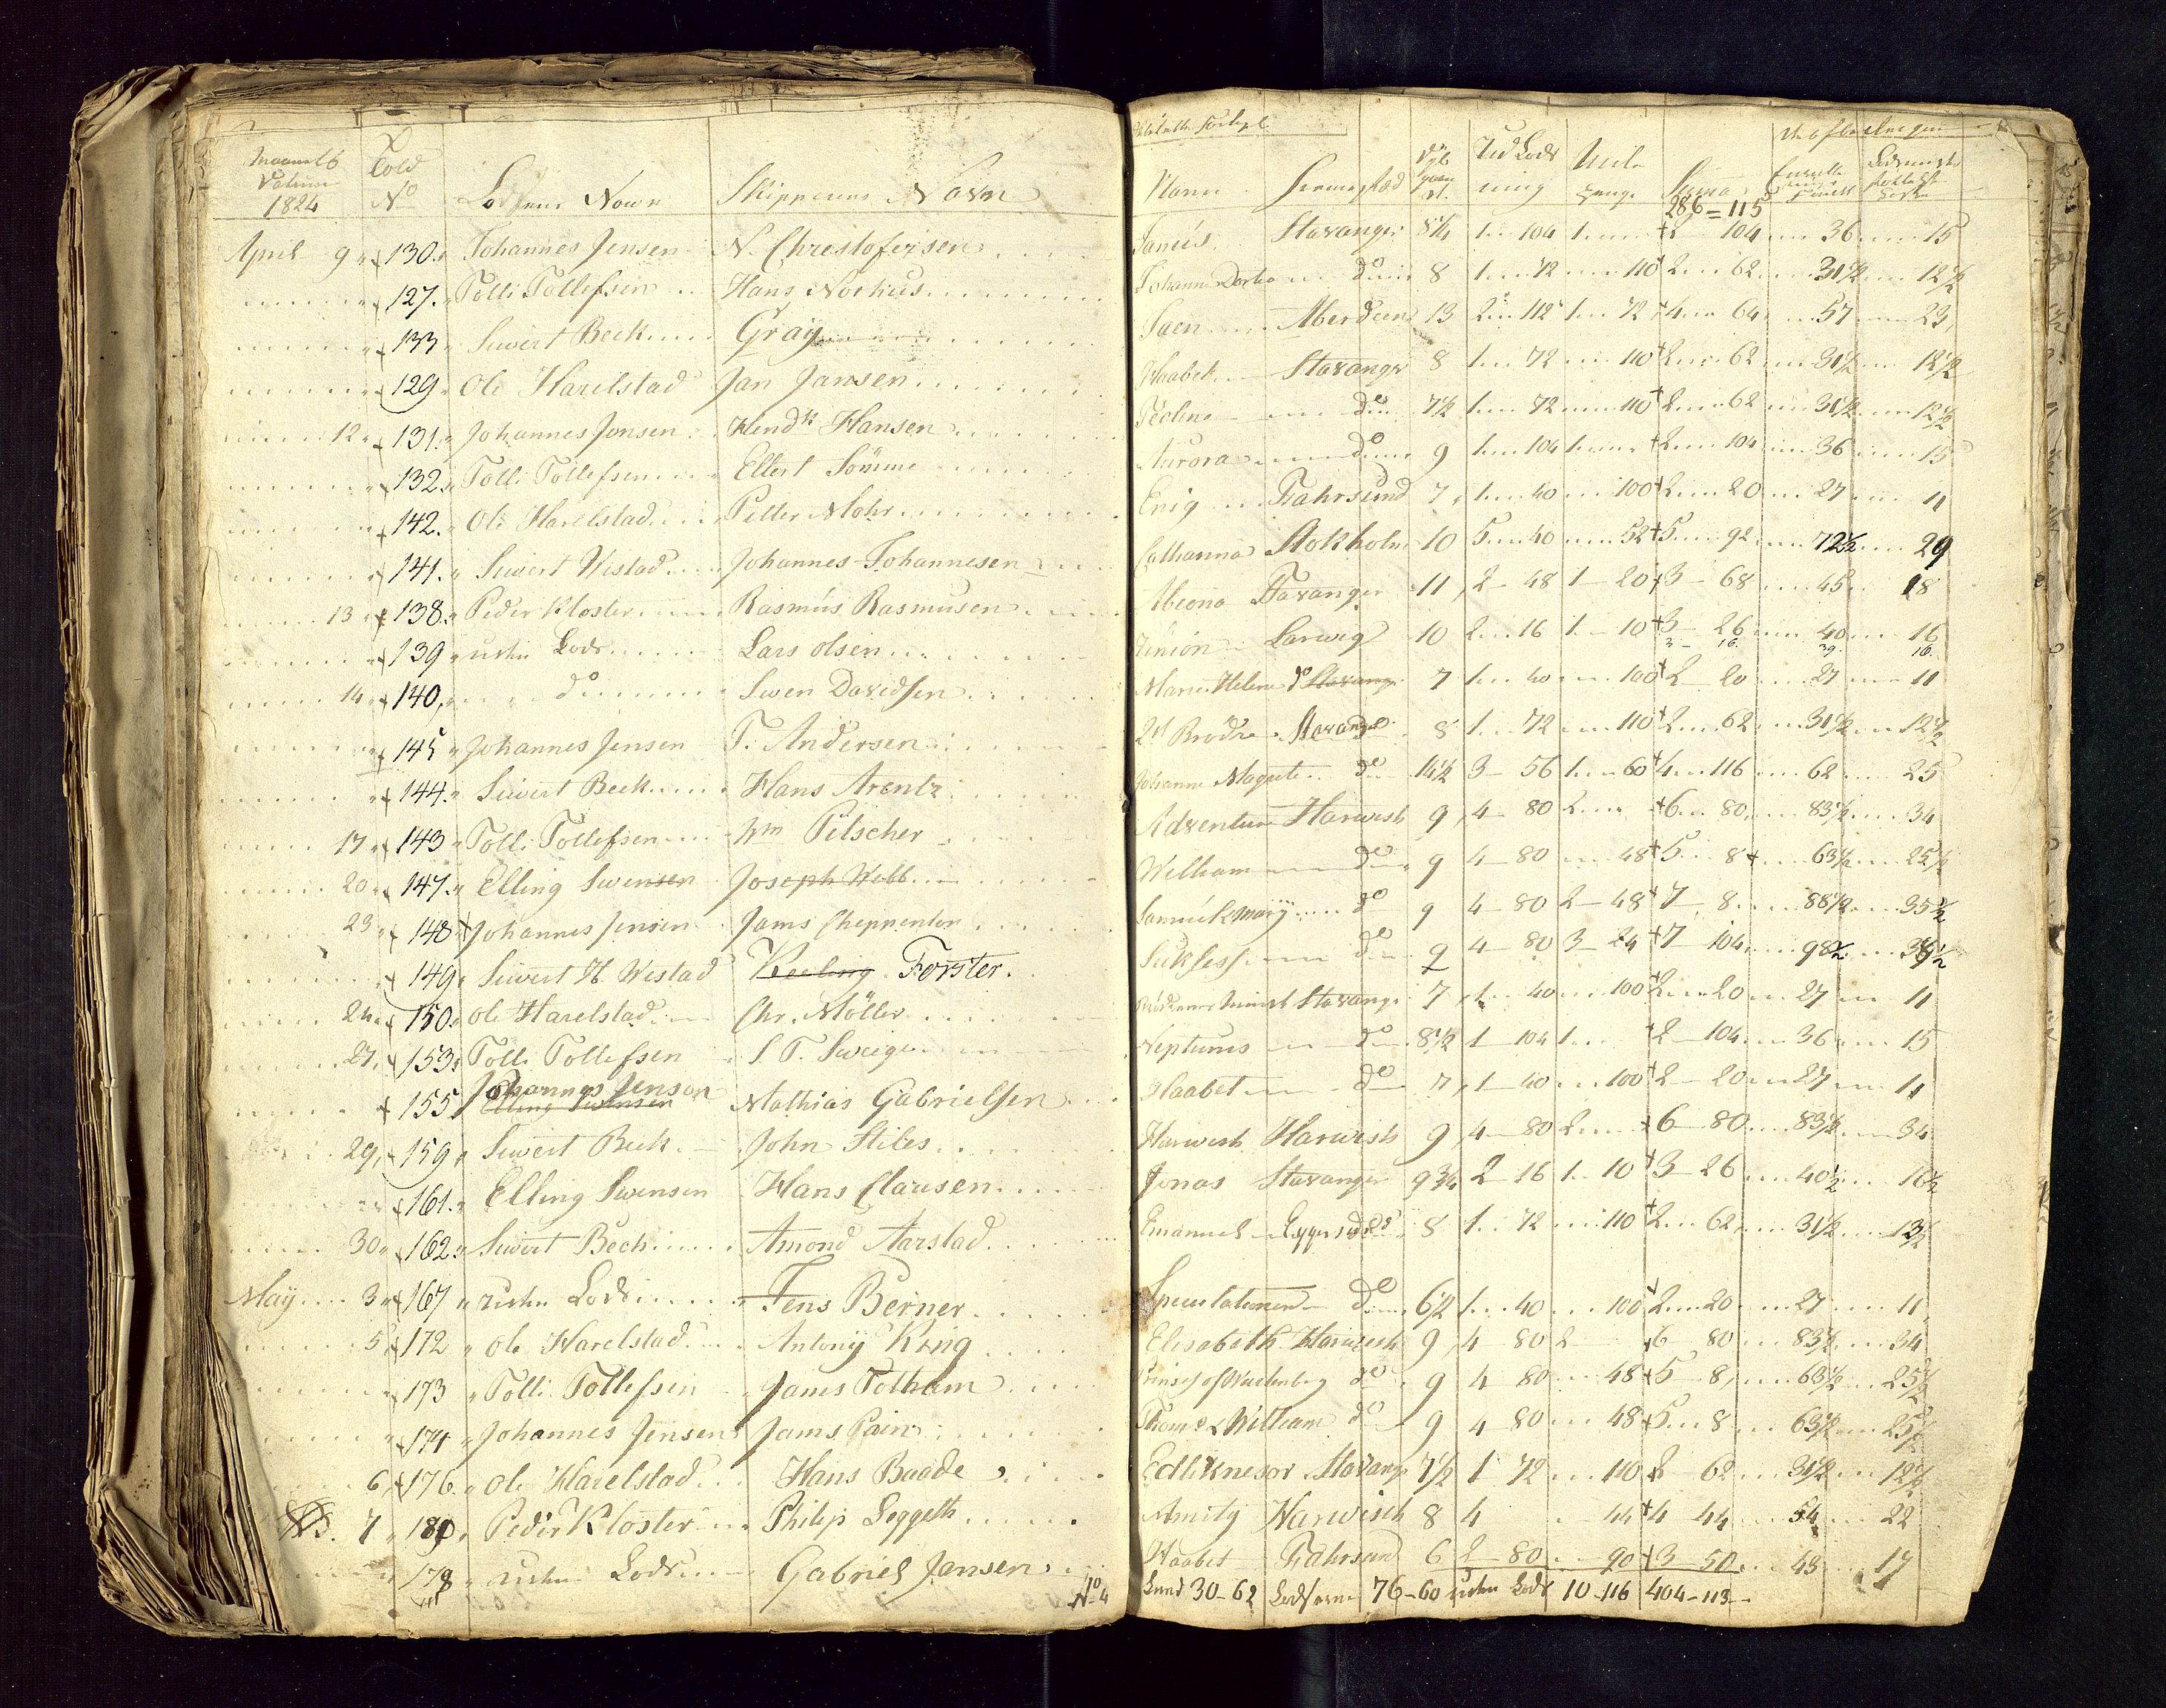 Maaneds Datum 1824 Told No Lodsens Navn Skipperens Navn
April 9 130 Johannes Jensen N. Christofersen
127 Tolli Tollefsen Hans Nothus
133 Siwert Beck Gray
129 Ole Harelstad Jan Jansen
12 131 Johannes Jensen Hendk Hansen
132 Tolli Tollefsen Ellert Sömme
142 Ole Harelstad Petter Mohr
141 Siwert Wistad Johannes Johannesen
13 138 Peder Kloster Rasmus Rasmusen
139 uden Lods Lars Olsen
14 140 do Swen Davidsen
145 Johannes Jensen T. Andersen
144 Siwert Beck Hans Arentz
17 143 Tolli Tollefsen Wm Pilscher
20 147 Elling Swensen Joseph Webb
23 148 Johannes Jensen Jams Cheppenten
149 Siwert H. Wistad Keeling Forster
24 150 Ole Harelstad Chr. Möller
27 153 Tolli Tollefsen S. T. Sweige
Johannes Jenson
155 Elling Swensen Mathias Gabrielsen
29 159 Siwert Beck John Stiles
161 Elling Swensen Hans Clausen
30 162 Siwert Bech Amond Aarstad
May 3 167 uden Lods Jens Berner
5 172 Ole Harelstad Antony King
173 Tolli Tollefsen James Totham
174 Johannes Jensen Jams Pain
6 176 Ole Harelstad Hans Baade
7 180 Peder Kloster Philip Leggeth
178 uden Lods Gabriel Jansen
No 4
Navn Hiemsted Ud Lods ning Mile penge Summa
286 = 115
Janús Stavanger 8 1/4 1 104 1 2 104 36 15
Johanne Dorthea do 8 1 72 110 2 62 31 1/2 12 1/2
Jaen Aberdeen 13 2 112 1 72 4 64 57 23
Haabet Stavanger 8 1 72 110 2 62 31 1/2 12 1/2
Peoline do 7 1/2 1 72 110 2 62 31 1/2 12 1/2
Aurora do 9 1 104 1 2 104 36 15
Enig Fahrsund 7 1 40 100 2 20 27 11
Catharina Stokholm 10 5 40 52 5 92 72 1/2 29
Abeona Stavanger 11 2 48 1 20 3 68 45 18
Union Larwig 10 2 16 1 10 3 26 40 16
3 16 39 16
Maria Helena do Stavanger 7 1 40 100 2 20 27 11
2de Brødre Stavanger 8 1 72 110 2 62 31 1/2 12 1/2
Johanne Magrete do 14 1/2 3 56 1 60 4 116 62 25
Adventure Harwish 9 4 80 2 6 80 83 1/2 34
William do 9 4 80 48 5 8 63 1/2 25 1/2
Samuel & Mary do 9 4 80 2 48 7 8 88 1/2 35 1/2
Suksess do 9 4 80 3 24 7 104 98 1/2 39 1/2
Stavanger 7 1 40 100 2 20 27 11
Neptunus do 8 1/2 1 104 1 2 104 36 15
Haabet do 7 1 40 100 2 20 27 11
Harwish Harwish 9 4 80 2 6 80 83 1/2 34
Jonas Stavanger 9 3/4 2 16 1 10 3 26 40 1/2 16 1/2
Emanuel Eggersund 8 1 72 110 2 62 31 1/2 13 1/2
Speculationen do 6 1/2 1 40 100 2 20 27 11
Elisabeth Harwish 9 4 80 2 6 80 83 1/2 34
Prinses of Wirtenberg do 9 4 80 48 5 8 63 1/2 25 1/2
Thom & William do 9 4 80 48 5 8 63 1/2 25 1/2
Stavang 7 1/2 1 72 110 2 62 31 1/2 12 1/2
Amity Harwisch 8 4 44 4 44 54 22
Haabet Fahrsund 6 2 80 90 3 50 43 17
Lund 30-62 Lodserne 76-60 uden Lods 10-116 404-113